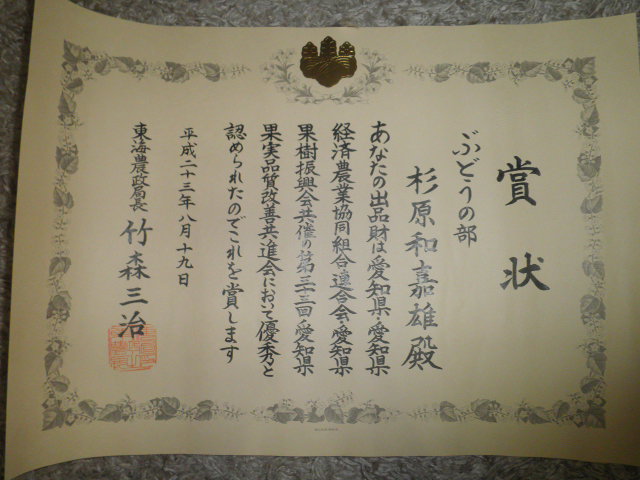 賞状
ぶどうの部
杉原和嘉雄殿
あなたの出品財は愛知県・愛知県
経済農業協同組合連合会・愛知県
果樹振興会共催の第三十三回愛知県
果実品質改善共進会において優秀と
認められたのでこれを賞します
平成二十三年八月十九日
東海農政局長 竹森三治